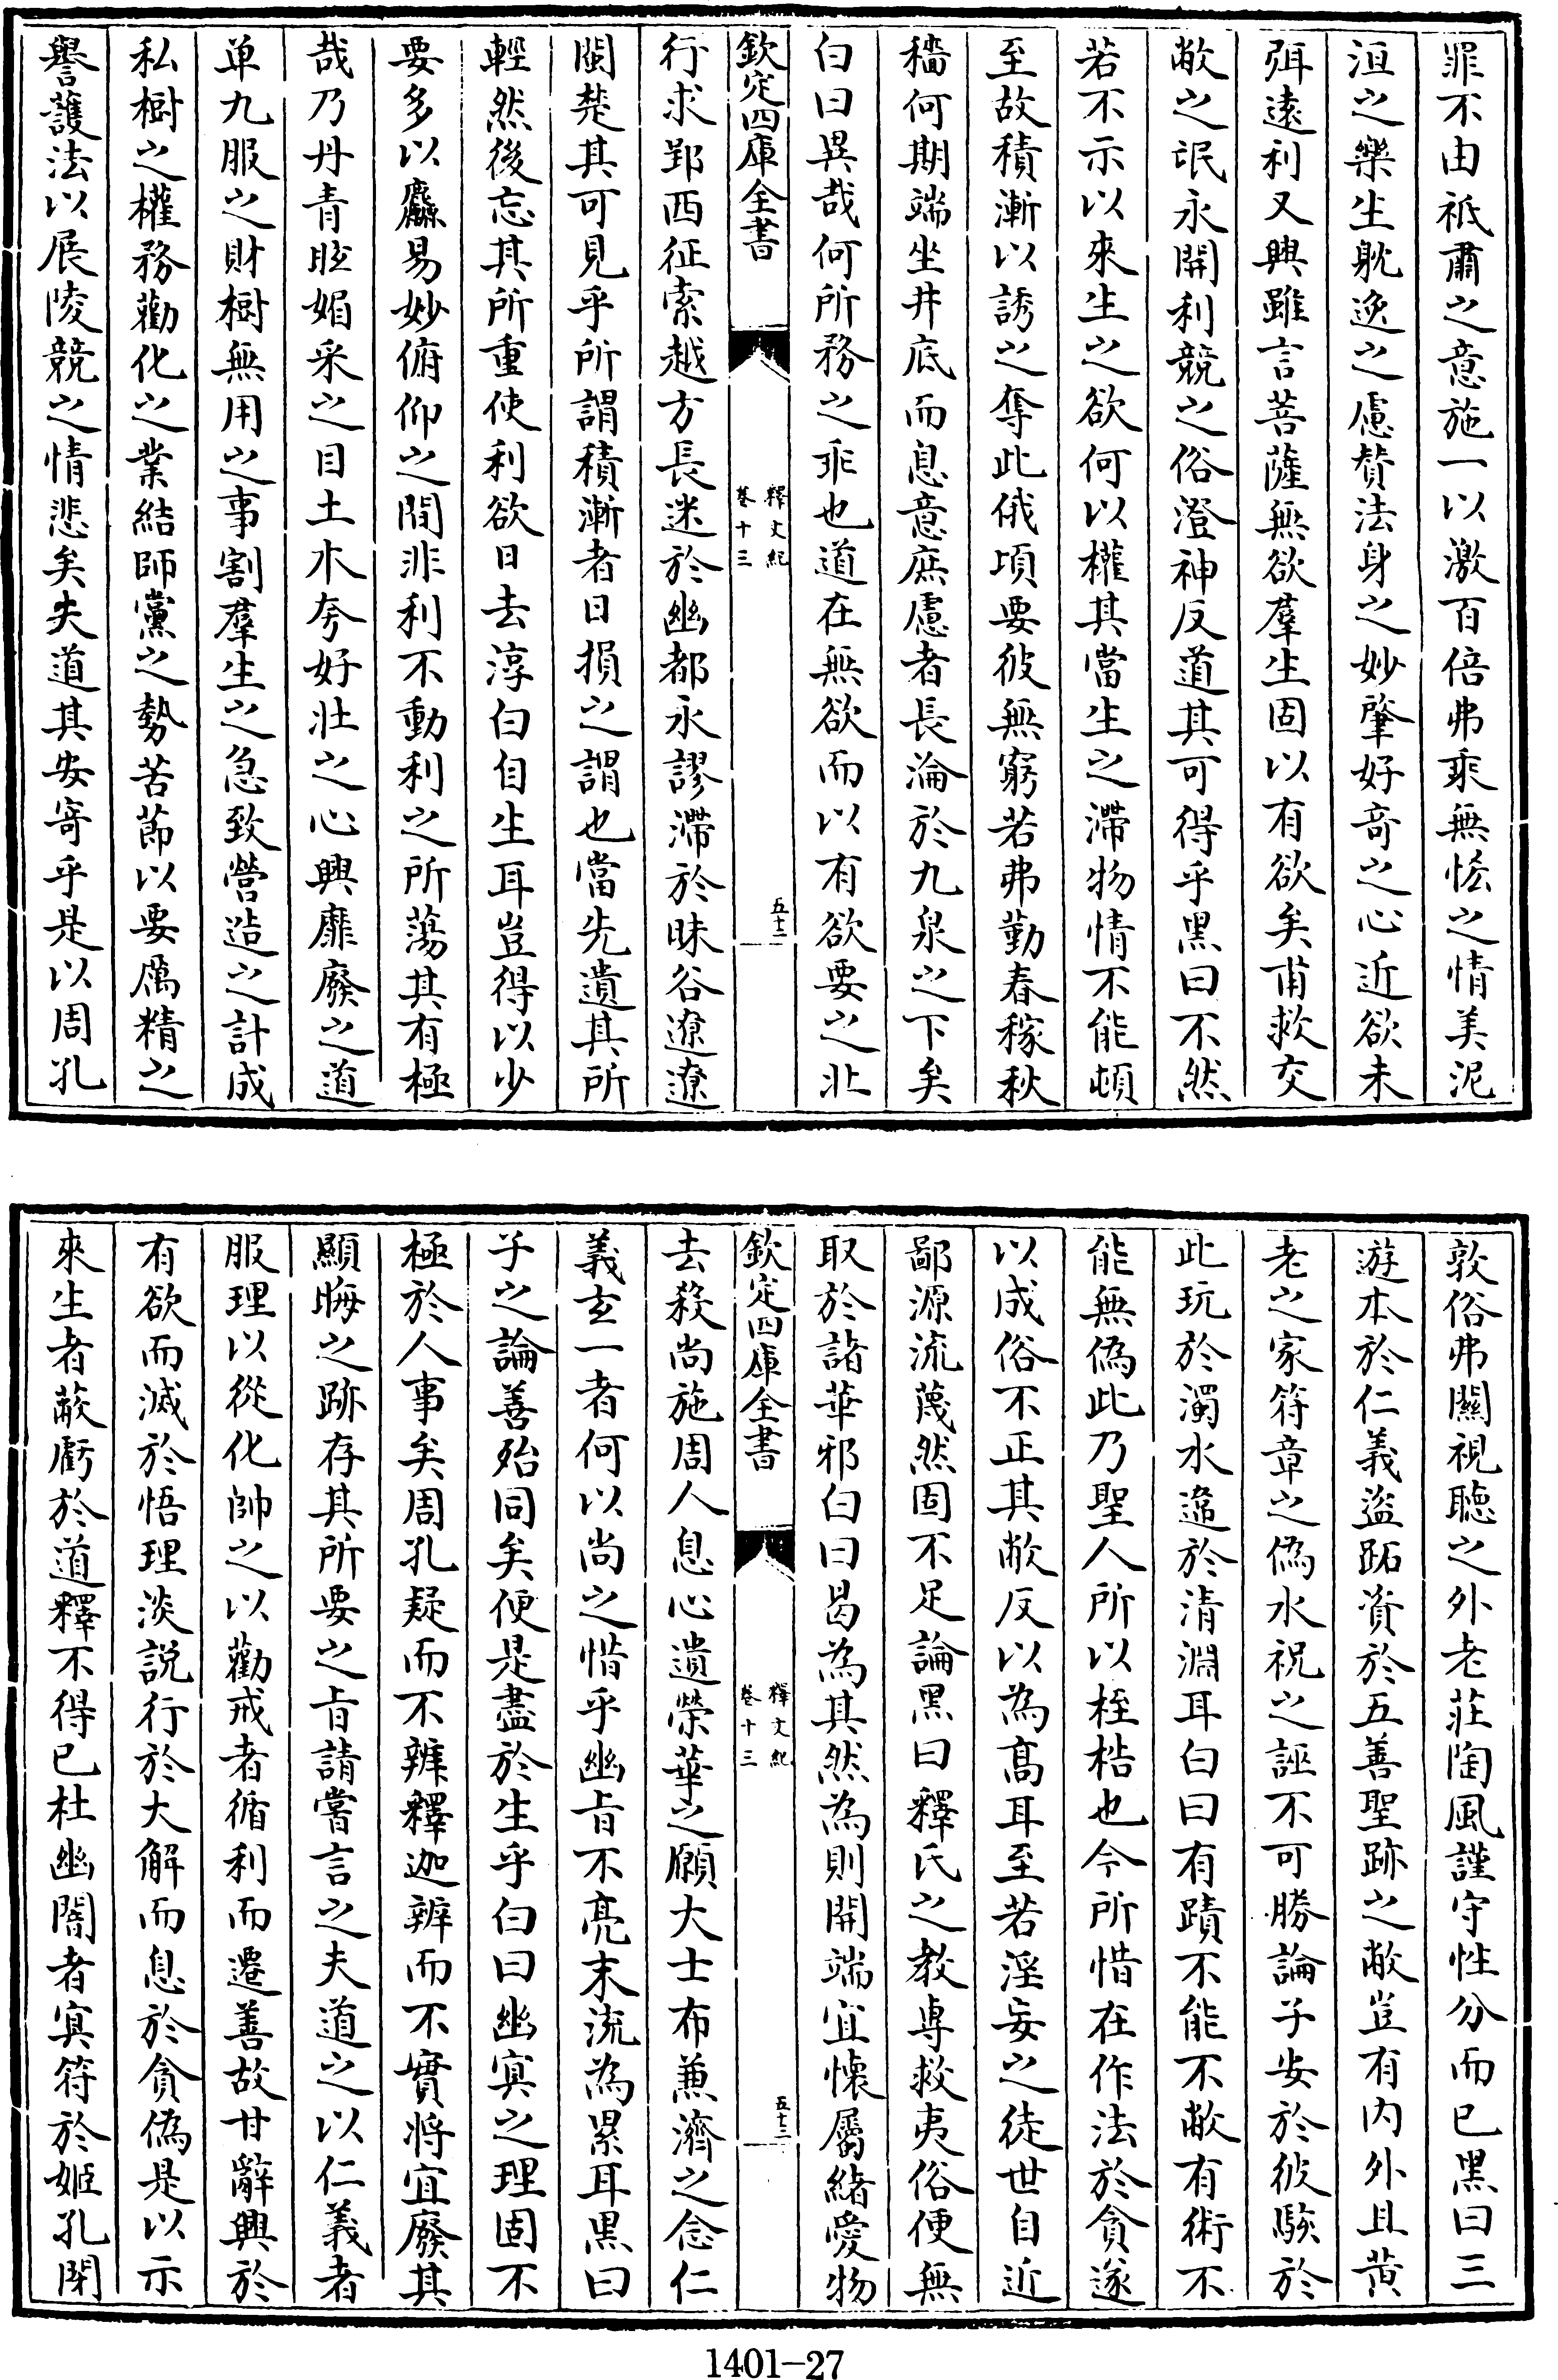 罪不由祗肅之意施一以激百倍弗乘無恡之情美泥
洹之樂生躭逸之慮贊法身之妙肇好奇之心近欲未
弭遠利又興雖言菩薩無欲羣生固以有欲矣甫救交
敝之氓永開利競之俗澄神反道其可得乎黑曰不然
若不示以來生之欲何以權其當生之滯物情不能頓
至故積漸以誘之奪此俄頃要彼無窮若弗勤春稼秋
穡何期端坐井底而息意庶慮者長淪於九泉之下矣
白曰異哉何所務之乖也道在無欲而以有欲要之北
欽定四庫全書
釋文紀
卷十三
五十二
行求郢西征索越方長迷於幽都永謬滯於昧谷遼遼
閩楚其可見乎所謂積漸者日損之謂也當先遺其所
輕然後忘其所重使利欲日去淳白自生耳豈得以少
要多以麤易妙俯仰之間非利不動利之所蕩其有極
哉乃丹青眩媚采之目土木夸好壯之心興靡廢之道
单九服之財樹無用之事割羣生之急致營造之計成
私樹之權務勸化之業結師黨之勢苦節以要厲精之
譽護法以展陵競之情悲矣夫道其安寄乎是以周孔
敦俗弗關視聽之外老莊陶風謹守性分而已黑曰三
遊本於仁義盜跖資於五善聖跡之敝豈有內外且黃
老之家符章之偽水祝之誣不可勝論子安於彼駭於
此玩於濁水違於清淵耳白曰有蹟不能不敝有術不
能無偽此乃聖人所以桎梏也今所惜在作法於貪遂
以成俗不正其敝反以為高耳至若淫妄之徒世自近
鄙源流蔑然固不足論黑曰釋氏之教專救夷俗便無
取於諸華邪白曰曷為其然為則開端宜懷屬緒愛物
欽定四庫全書
釋文紀
卷十三
五十三
去殺尚施周人息心遺榮華之願大士布兼濟之念仁
義玄一者何以尚之惜乎幽旨不亮末流為累耳黑曰
子之論善殆同矣便是盡於生乎白曰幽㝠之理固不
極於人事矣周孔疑而不辨釋迦辨而不實將宜廢其
顯晦之跡存其所要之旨請嘗言之夫道之以仁義者
服理以從化帥之以勸戒者循利而遷善故甘辭興於
有欲而滅於悟理淡說行於大解而息於貪偽是以示
來生者蔽虧於道釋不得已杜幽闇者㝠符於姬孔閉
1401-27